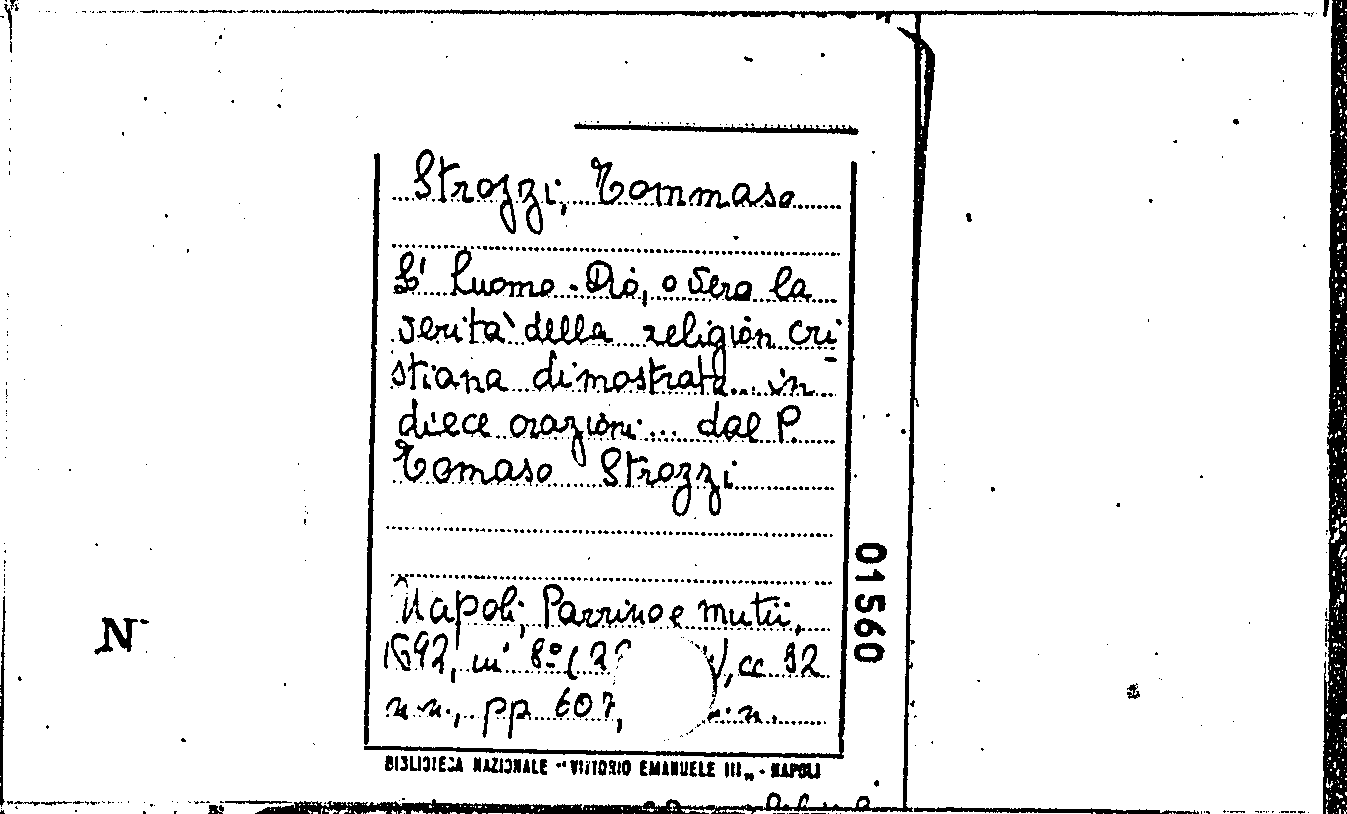 Strozzi, Tommaso
L' huomo-Dio, o vero la
verità della religion cri
stiana dimostrata... in
diece orazioni... dal P.
Tomaso Strozzi
Napoli, Parrino e Mutii,
1692, in 8º (
, cc 32
n.n., pp 607,
n.n.
01560
N
BIBLIOTECA NAZIONALE "VITTORIO EMANUELE III" - NAPOLI